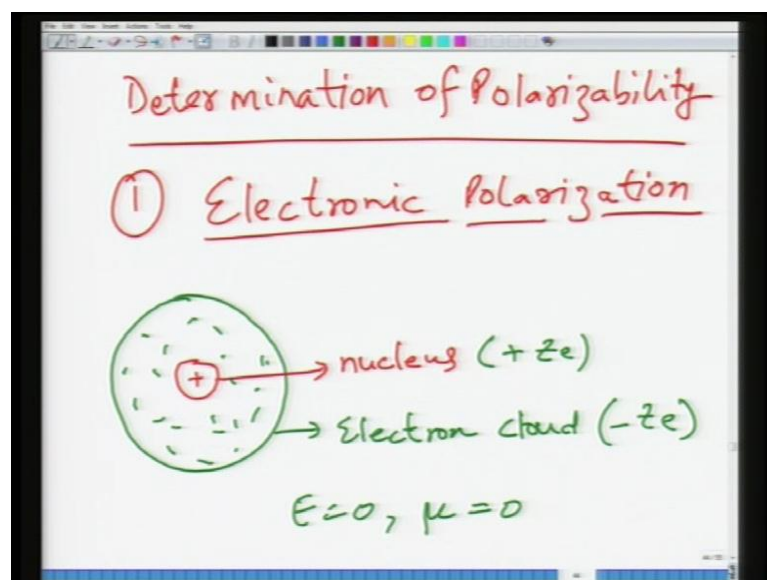 Determination of Polarizability
1 Electronic Polarization
+ nucleus (+ze)
Electron cloud (-ze)
E=0, μ=0